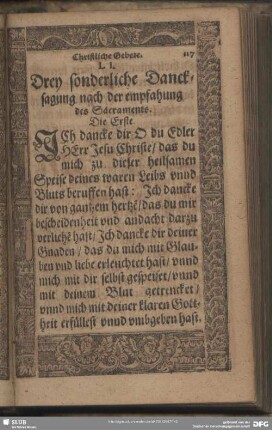 Christliche Gebete. 117
L I.
Drey sonderliche Danck-
sagung nach der empfahung
des Sacraments.
Die Erste.
ICh dancke dir O du Edler
HErr Jesu Christe/ das du
mich zu dieser heilsamen
Speise deines waren Leibs vnnd
Bluts beruffen hast: Ich dancke
dir von gantzem hertzẽ/ das du mir
bescheidenheit vnd andacht darzu
verliehẽ hast/ Ich dancke dir deiner
Gnaden/ das du mich mit Glau-
ben vnd liebe erleuchtet hast/ vnnd
mich mit dir selbst gespeiset/ vnnd
mit deinem Blut getrencket/
vnnd mich mit deiner klaren Gott-
heit erfüllest vnnd vmbgeben hast.
SLUB
DFG